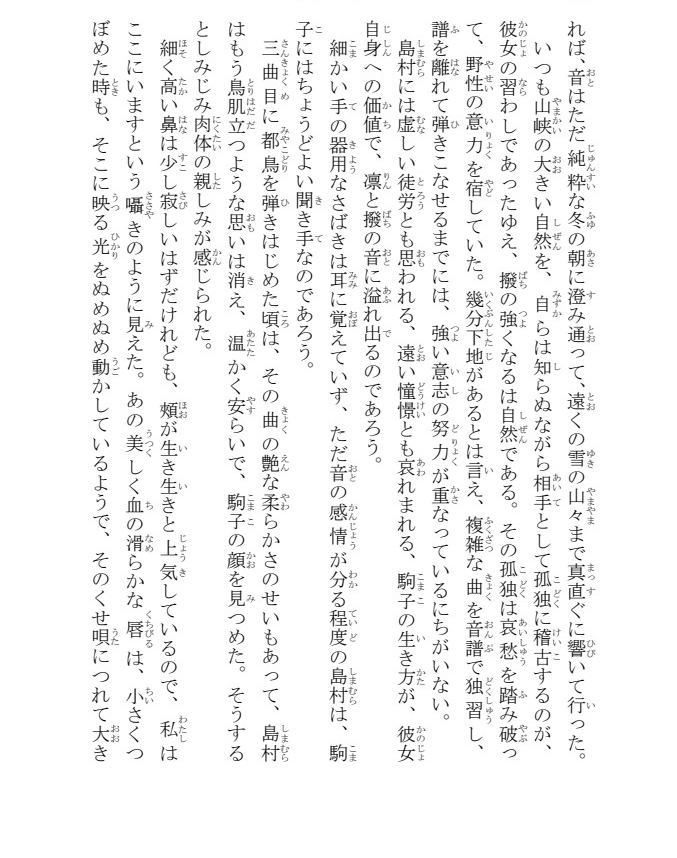 れば、音はただ純粋な冬の朝に澄み通って、遠くの雪の山々まで真直ぐに響いて行った。
いつも山峡の大きい自然を、自らは知らぬながら相手として孤独に稽古するのが、
彼女の習わしであったゆえ、撥の強くなるは自然である。その孤独は哀愁を踏み破っ
て、野性の意力を宿していた。幾分下地があるとは言え、複雑な曲を音譜で独習し、
譜を離れて弾きこなせるまでには、強い意志の努力が重なっているにちがいない。
島村には虚しい徒労とも思われる、遠い憧憬とも哀れまれる、駒子の生き方が、彼女
自身への価値で、凛と撥の音に溢れ出るのであろう。
細かい手の器用なさばきは耳に覚えていず、ただ音の感情が分る程度の島村は、駒
子にはちょうどよい聞き手なのであろう。
三曲目に都鳥を弾きはじめた頃は、その曲の艶な柔らかさのせいもあって、島村
はもう鳥肌立つような思いは消え、温かく安らいで、駒子の顔を見つめた。そうする
としみじみ肉体の親しみが感じられた。
細く高い鼻は少し寂しいはずだけれども、頰が生き生きと上気しているので、私は
ここにいますという囁きのように見えた。あの美しく血の滑らかな唇は、小さくつ
ぼめた時も、そこに映る光をぬめぬめ動かしているようで、そのくせ唄につれて大き